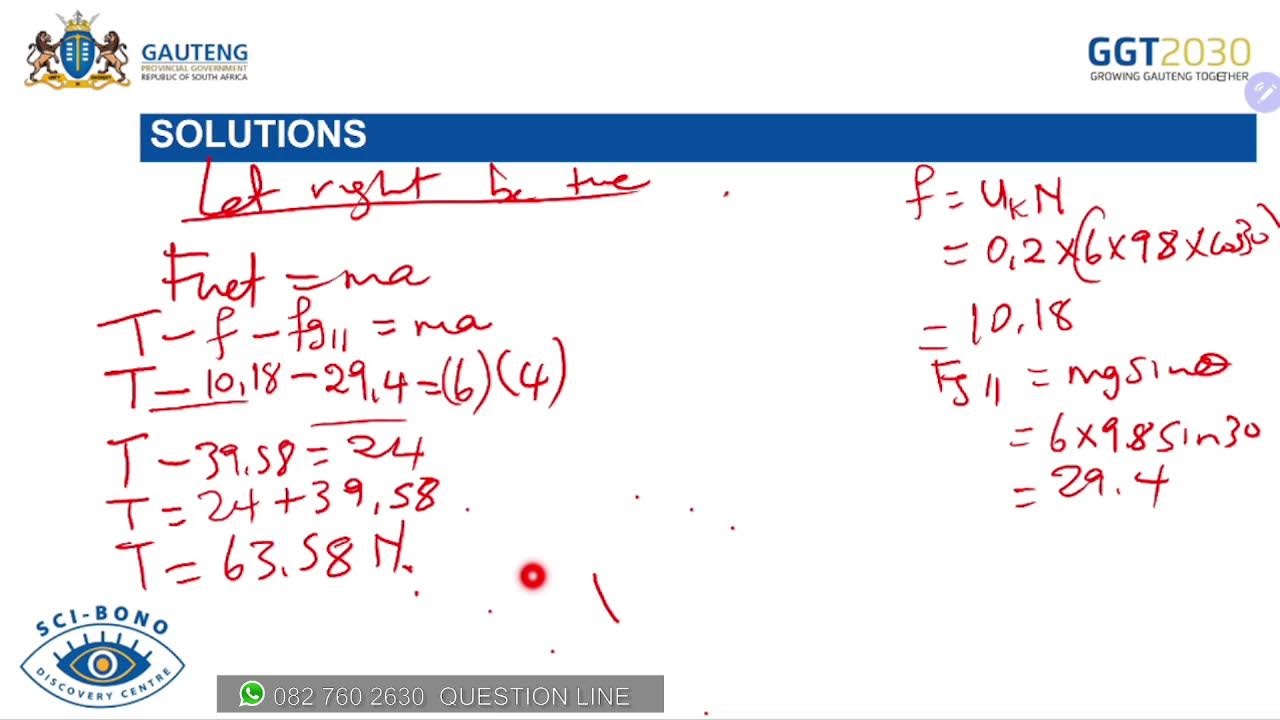 GAUTENG
PROVINCIAL GOVERNMENT
REPUBLIC OF SOUTH AFRICA
GGT2030
GROWING GAUTENG TOGETHER
SOLUTIONS
Let right be +ve
Fnet = ma
T - f - fg|| = ma
T - 10,18 - 29,4 = (6)(4)
T - 39,58 = 24
T = 24 + 39,58
T = 63.58 N.
f = UₖN
= 0,2 × (6 × 98 × cos30)
= 10.18
Fg|| = mg sinθ
= 6 × 9.8 sin30
= 29.4
SCI-BONO
DISCOVERY CENTRE
082 760 2630 QUESTION LINE